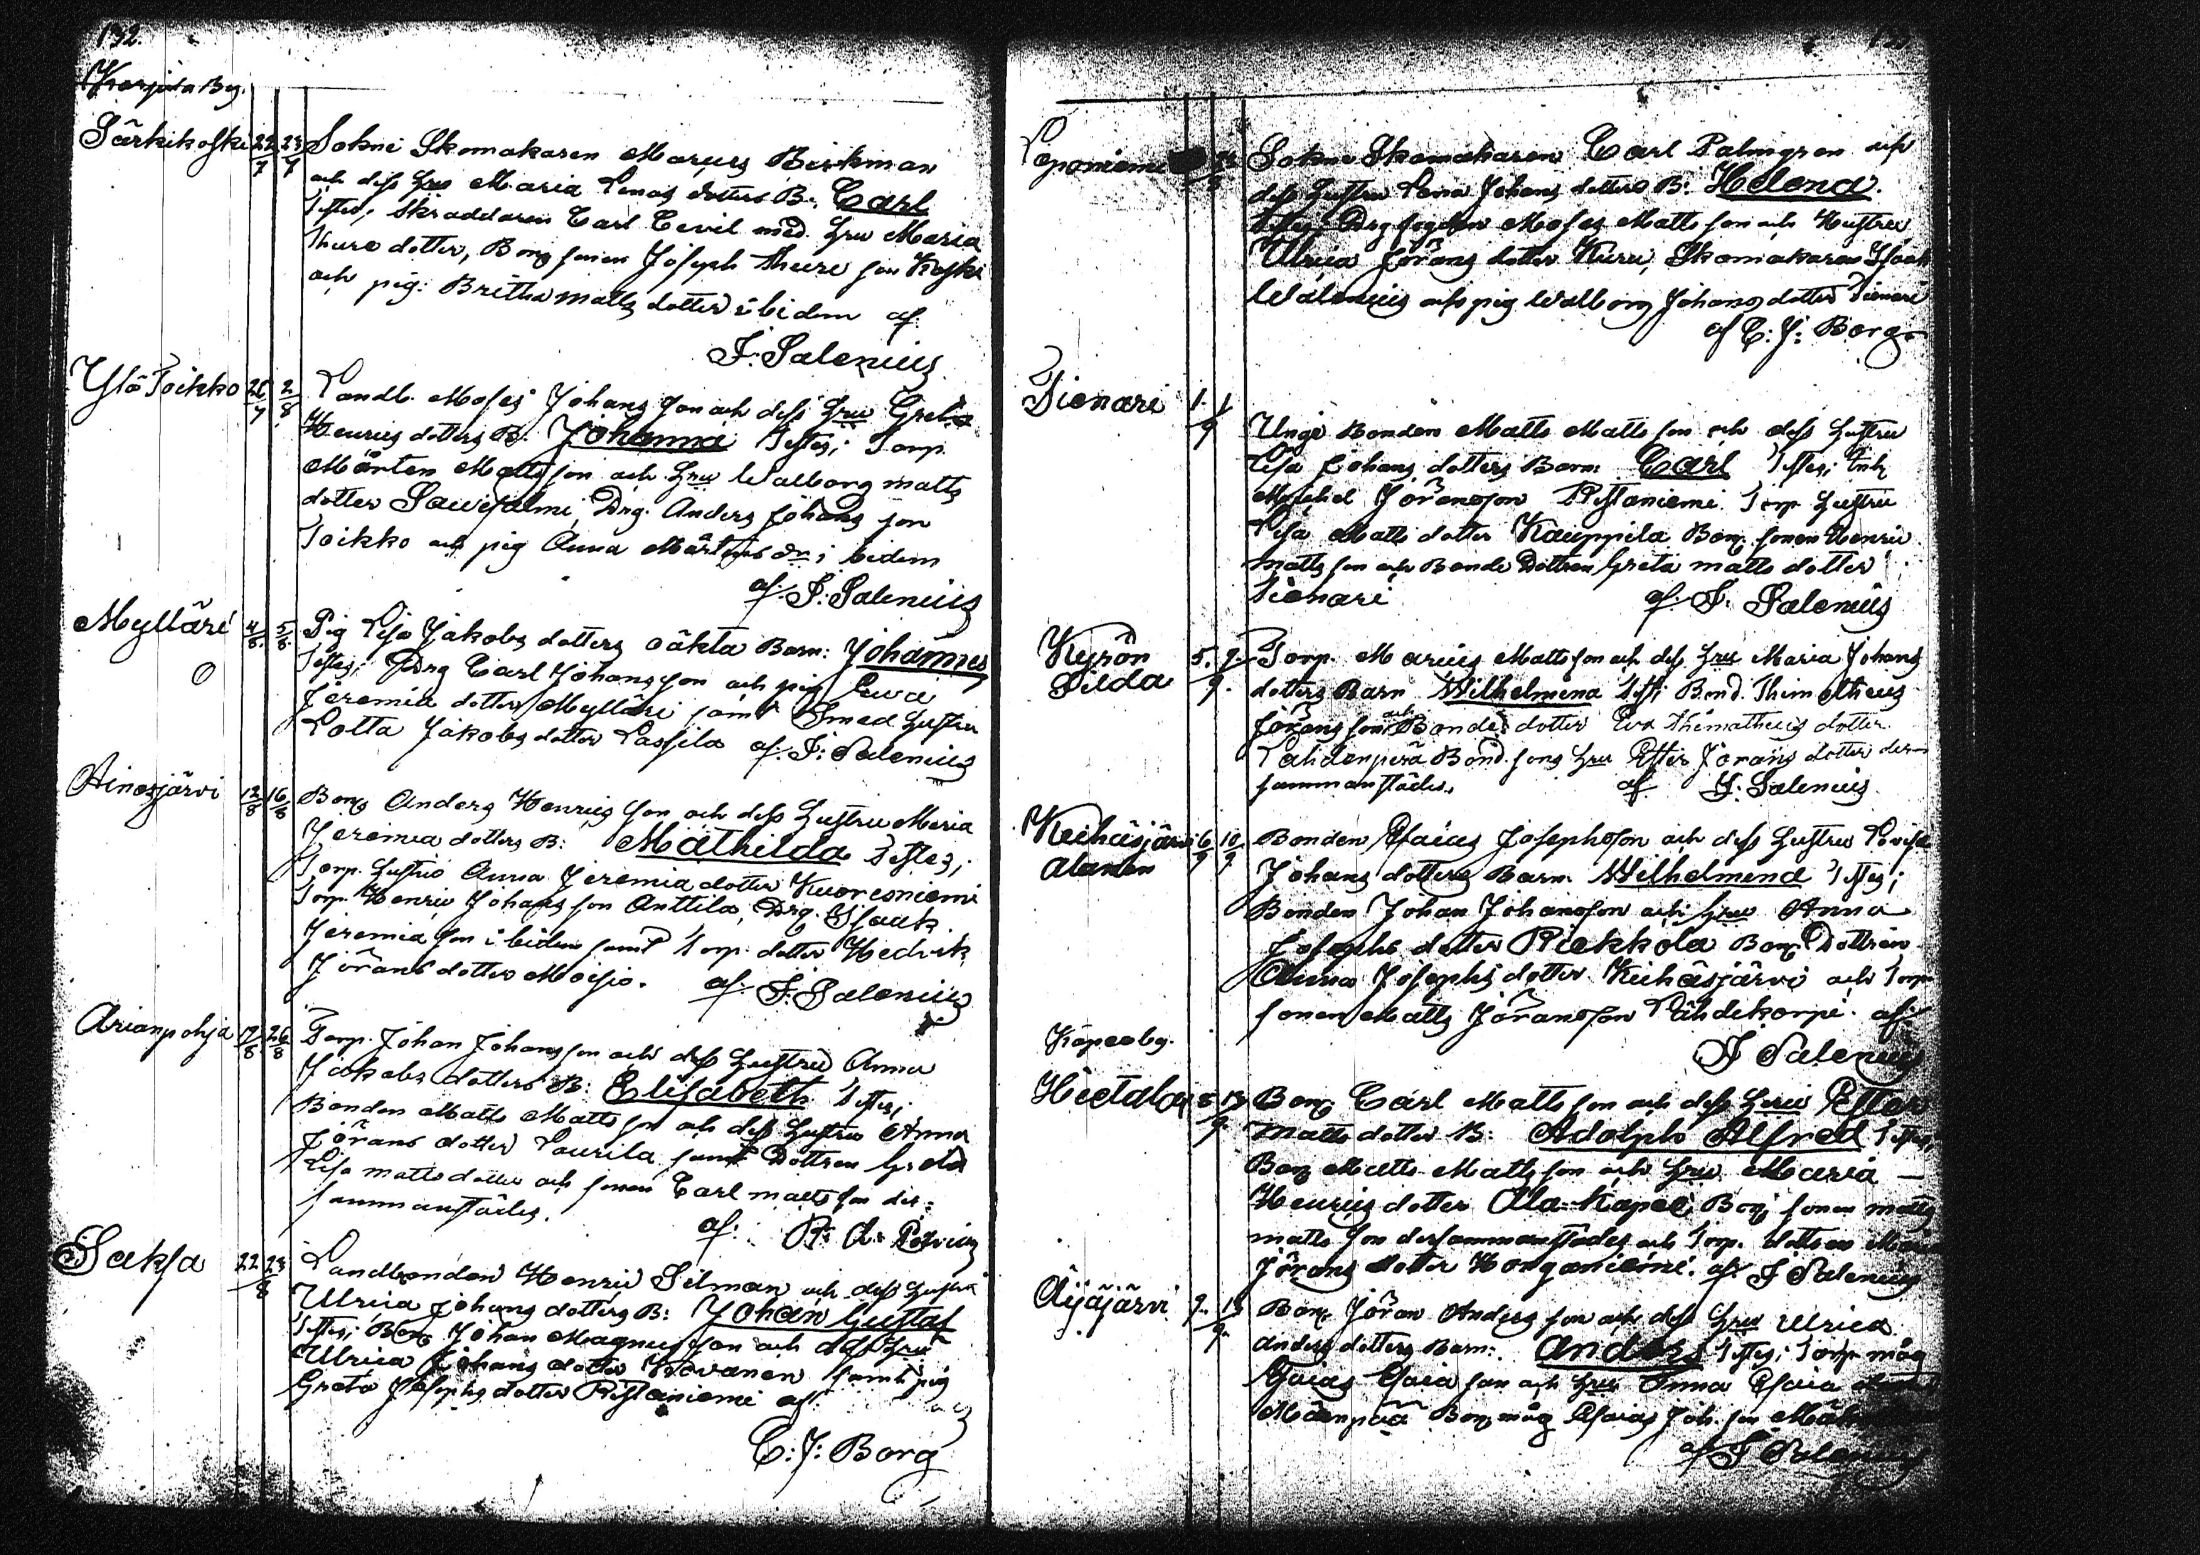 132.
Karjala By.
Särkikoski 22/7 23/7 Sokne Skomakaren Marcus Birkman
och dess Hru Maria Lenas dotters B. Carl
Testes; Skraddaren Carl Cevil med Hru Maria
Thure dotter, Bong sonen Joseph Thure son Koski
och pig: Britha Matts dotter ibidem af
F: Salenius
Ylö Toikko 26/7 2/8 Landb. Moses Johans son och dess Hru Greta
Henrics dotters B. Johanna Testes; Torp.
Mårten Matts son och Hru Walborg Matts
dotter Sawisalmi, Drg. Anders Johans son
Toikko och pig Anna Mårtens dr ibidem
af F: Salenius
Mylläri 4/8 5/8 Pig Lisa Jakobs dotters oäkta Barn: Johannes
Testes; Drg Carl Johans son och pig Ewa
Jeremiæ dotter Mylläri samt Smed Hustru
Lotta Jakobs dotter Lassila af F: Salenius
Ainasjärvi 12/8 16/8 Bong Anders Henrics son och dess Hustru Maria
Jeremia dotters B: Mathilda Testes;
Torp. Hustru Anna Jeremia dotter Kuoresniemi
Torp. Henric Johans son Anttila, Drg. Isaak
Jeremia son ibidem samt Torp. dotter Hedvik
Jörans dotter Moisio. af F: Salenius
Arianpohja 17/8 26/8 Torp. Johan Johans son och dess Hustru Anna
Jakobs dotters B: Elisabeth Testes;
Bonden Matts Matts son och dess Hustru Anna
Jörans dotter Laurila samt Dottren Greta
Lisa Matts dotter och sonen Carl Matts son der=
sammanstädes.
af: P: A:
Saksa 22 23/8 Landbonden Henric Silman och dess Hustru
Ulrica Johans dotters B: Johan Gustaf
Testes; Bong Johan Magnus son och dess Hru
Ulrica Johans dotter samt pig
Greta Josephs dotter Ristaniemi af:
C: J: Borg
133.
Leponiemi Sokne Skomakaren Carl Palmgren och
dess Hustru Lena Johans dotters B: Helena.
Testes; Drg Moses Matts son och Hustru
Ulrica Jörans dotter Kuru, Skomakaren Isaak
Walenius och pig Walborg Johans dotter Dienari
af C: J: Borg.
Dienari 1. 1/9
Unge Bonden Matts Matts son och dess Hustru
Lisa Johans dotters Barn: Carl Testes; Enk
Michel Jöransson Ristaniemi Torp Hustru
Lisa Matts dotter Kauppila Bong sonen Henric
Matts son och Bonde Dottren Greta Matts dotter
Dienari af: F: Salenius
Kyrön
Silda 5. 9/9. Torp. Marcus Matts son och dess Hru Maria Johans
dotters Barn Wilhelmina Test; Bond. Thimotheus
Jörans son och Bonde dotter Eva Thimotheus dotter
Lahdenperä Bond. sons Hru Ester Jörans dotter der
sammanstädes. af F: Salenius
Keihäsjärvi
Alanen 6/9 10/9 Bonden Esaias Josephsson och dess Hustru Lovisa
Johans dotters Barn: Wilhelmina Testes;
Bonden Johan Johansson och Hru Anna
Josephs dotter Riekkola Bong Dottren
Anna Josephs dotter Keihäsjärvi och Torp
sonen Matts Jöransson Tähdekorpi. af:
F Salenius
Kapeeby.
Hietaloa 8 13/9 Bong Carl Matts son och dess Hru Ester
Matts dotter B: Adolph Alfred Testes;
Bong Matts Matts son och Hru Maria
Henrics dotter Ala-Kapee, Bong sonen Matts
Matts son dersammanstädes och Torp. dottren Maria
Jörans dotter Honganiemi. af: F Salenius
Äijäjärvi 9. 13/9. Bong Jöran Anders son och dess Hru Ulrica
Anders dotters Barn: Anders Testes; Torp måg
Esaias Esaia son och Hru Anna Esaia
Mäenpää Bong måg Esaias Joh. son
af F Salenius